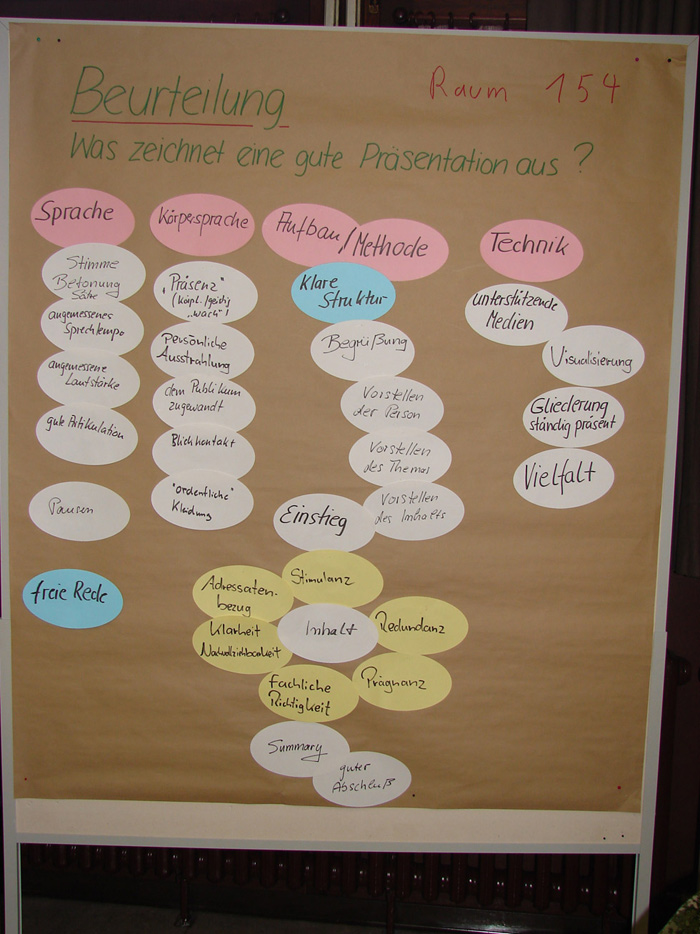 Beurteilung
Raum 154
Was zeichnet eine gute Präsentation aus?
Sprache
Stimme
Betonung
angemessenes
Sprechtempo
angemessene
Lautstärke
gute Artikulation
Pausen
freie Rede
Körpersprache
"Präsenz"
(körpl./geistig
"wach")
Persönliche
Ausstrahlung
dem Publikum
zugewandt
Blickkontakt
"ordentliche"
Kleidung
Aufbau/Methode
Klare
Struktur
Begrüßung
Vorstellen
der Person
Vorstellen
des Themas
Vorstellen
des Inhalts
Einstieg
Stimulanz
Adressaten-
bezug
Inhalt
Redundanz
Klarheit
Nachvollziehbarkeit
Prägnanz
Fachliche
Richtigkeit
Summary
guter
Abschluß
Technik
unterstützende
Medien
Visualisierung
Gliederung
ständig präsent
Vielfalt